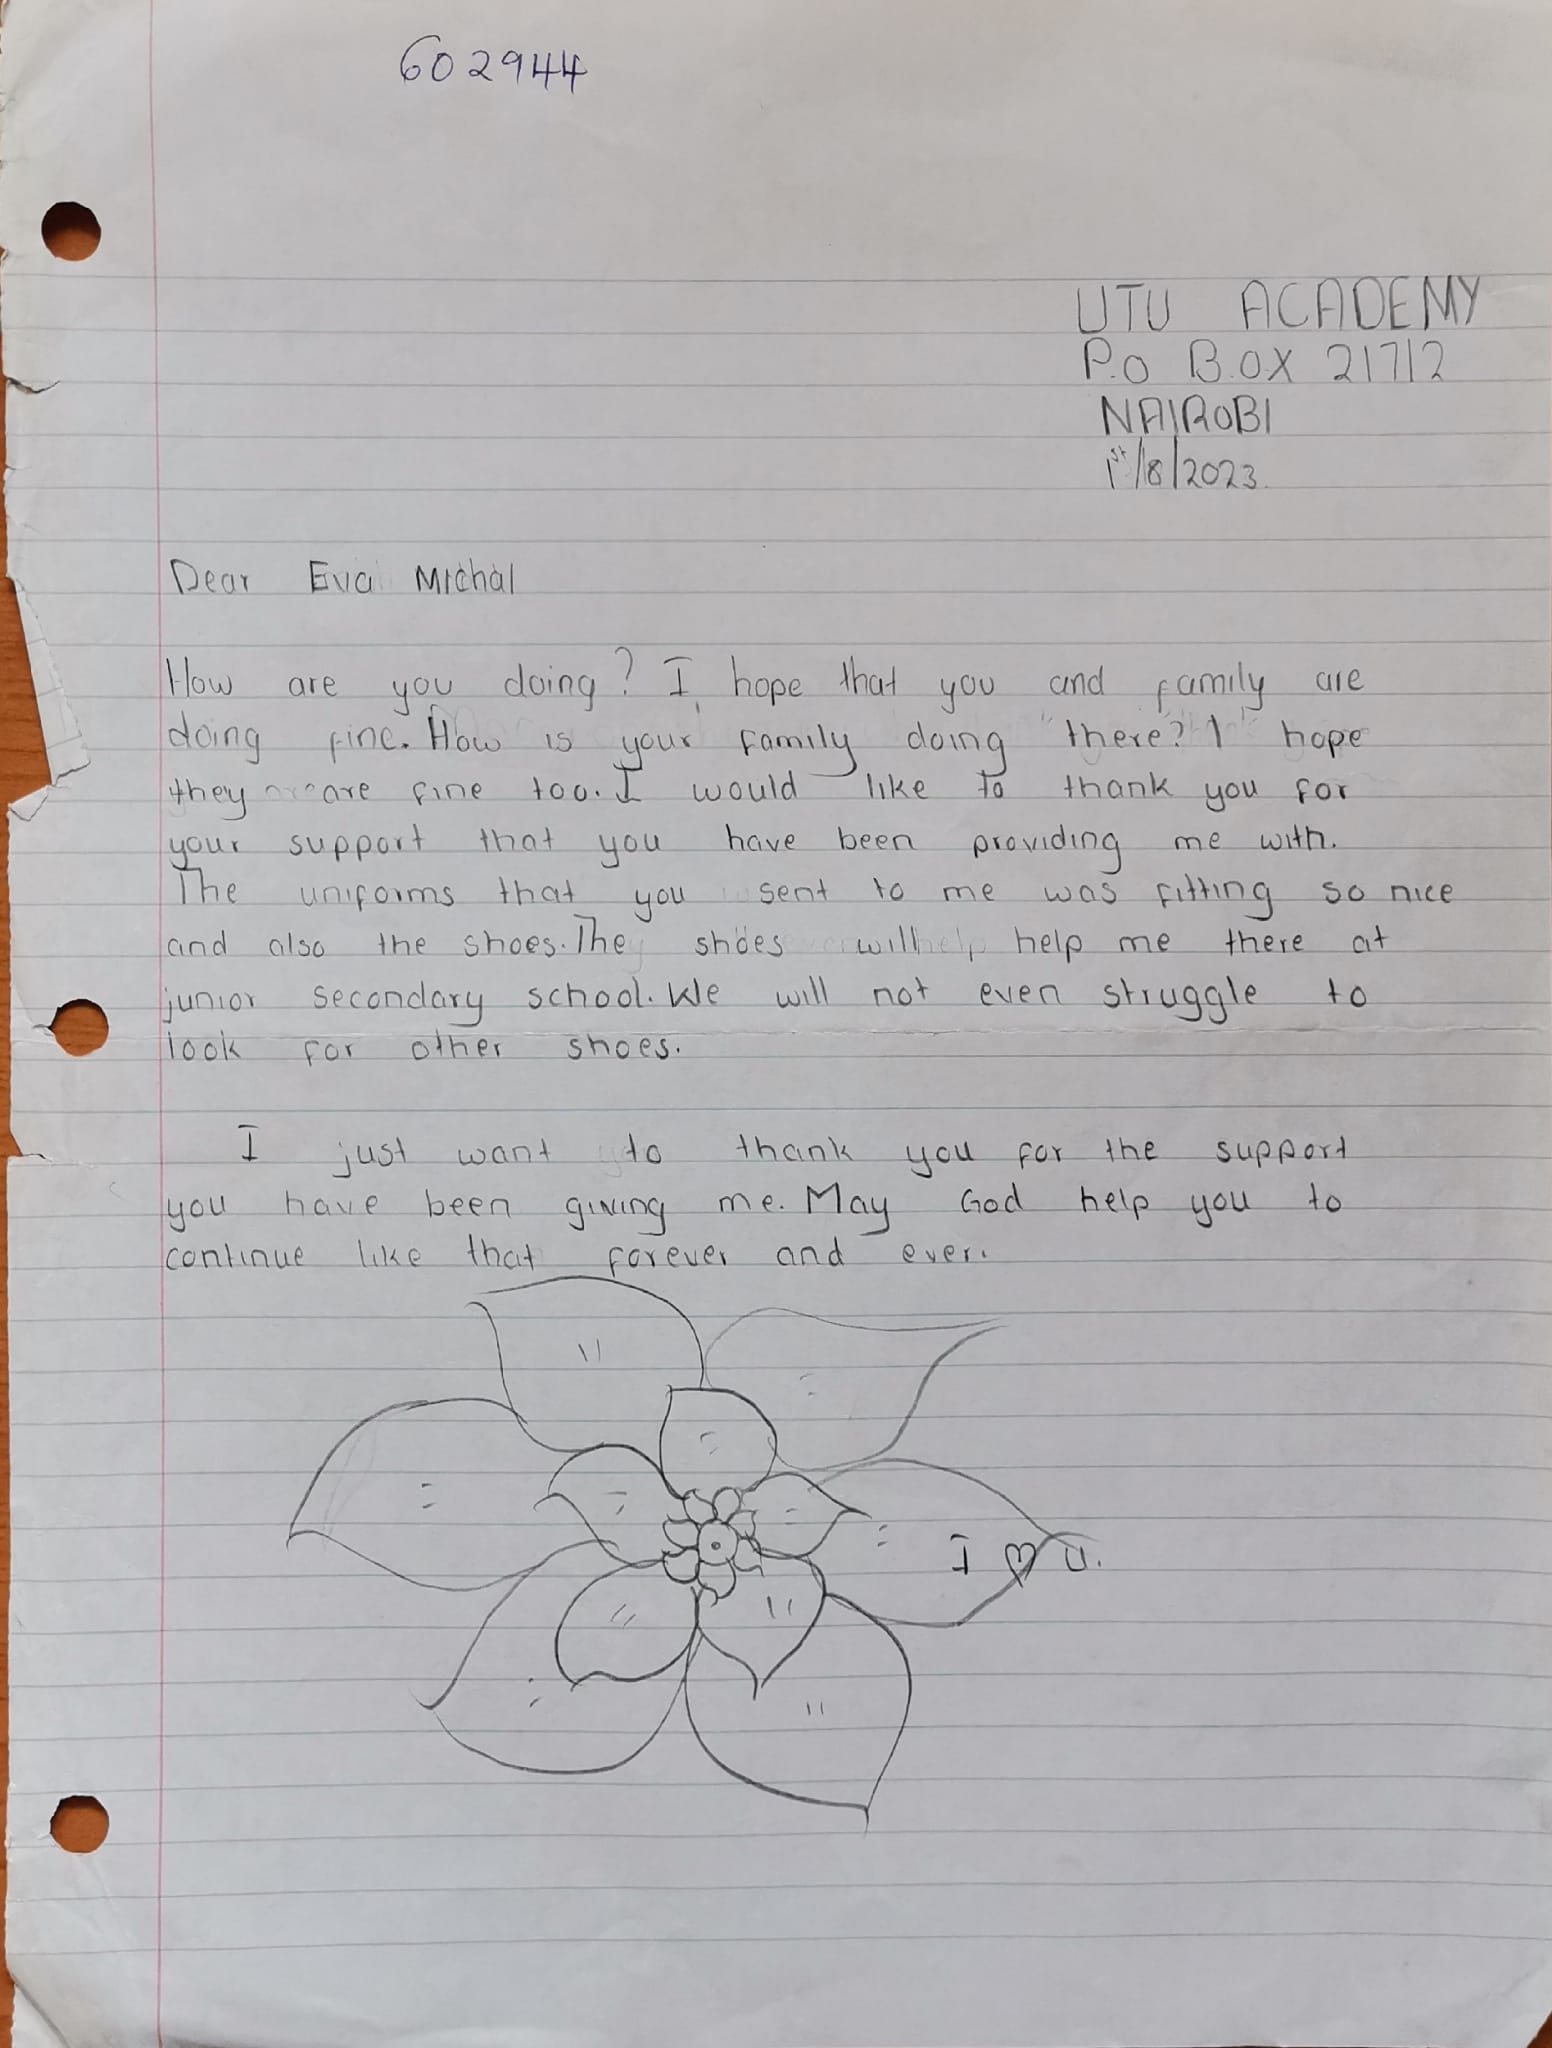 602944
UTU ACADEMY
P.O B.OX 21712
NAIROBI
1st/8/2023.
Dear Eva Michal
How are you doing? I hope that you and family are
doing fine. How is your family doing there? I hope
they are fine too. I would like to thank you for
your support that you have been providing me with.
The uniforms that you sent to me was fitting so nice
and also the shoes. The shoes will help me there at
junior secondary school. We will not even struggle to
look for other shoes.
I just want to thank you for the support
you have been giving me. May God help you to
continue like that forever and ever.
I ♡ U.